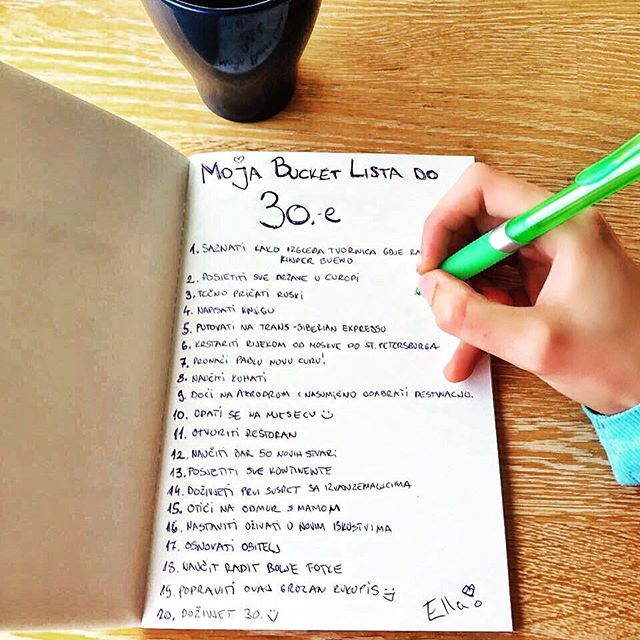 MOJA BUCKET LISTA DO
30.-e
1. SAZNATI KAKO IZGLEDA TVORNICA GDJE RA
KINDER BUENO
2. POSJETITI SVE DRŽAVE U EUROPI
3. TEČNO PRIČATI RUSKI
4. NAPISATI KNJIGU
5. PUTOVATI NA TRANS-SIBERIAN EXPRESSU
6. KRSTARITI RIJEKOM OD MOSKVE DO ST. PETERSBURGA
7. PRONAĆI PABLU NOVU CURU!
8. NAUČITI KUHATI
9. DOĆI NA AERODROM I NASUMIČNO ODABRATI DESTINACIJU.
10. OPATI SE NA MJESECU
11. OTVORITI RESTORAN
12. NAUČITI BAR 50 NOVIH STVARI
13. POSJETITI SVE KONTINENTE
14. DOŽIVJETI PRVI SUSRET SA IZVANZEMALJCIMA
15. OTIĆI NA ODMOR S MAMOM
16. NASTAVITI UŽIVATI U NOVIM ISKUSTVIMA
17. OSNOVATI OBITELJ
18. NAUČIT RADIT BOLJE FOTKE
19. POPRAVITI OVAJ GROZAN RUKOPIS
20. DOŽIVJET 30.
Ella